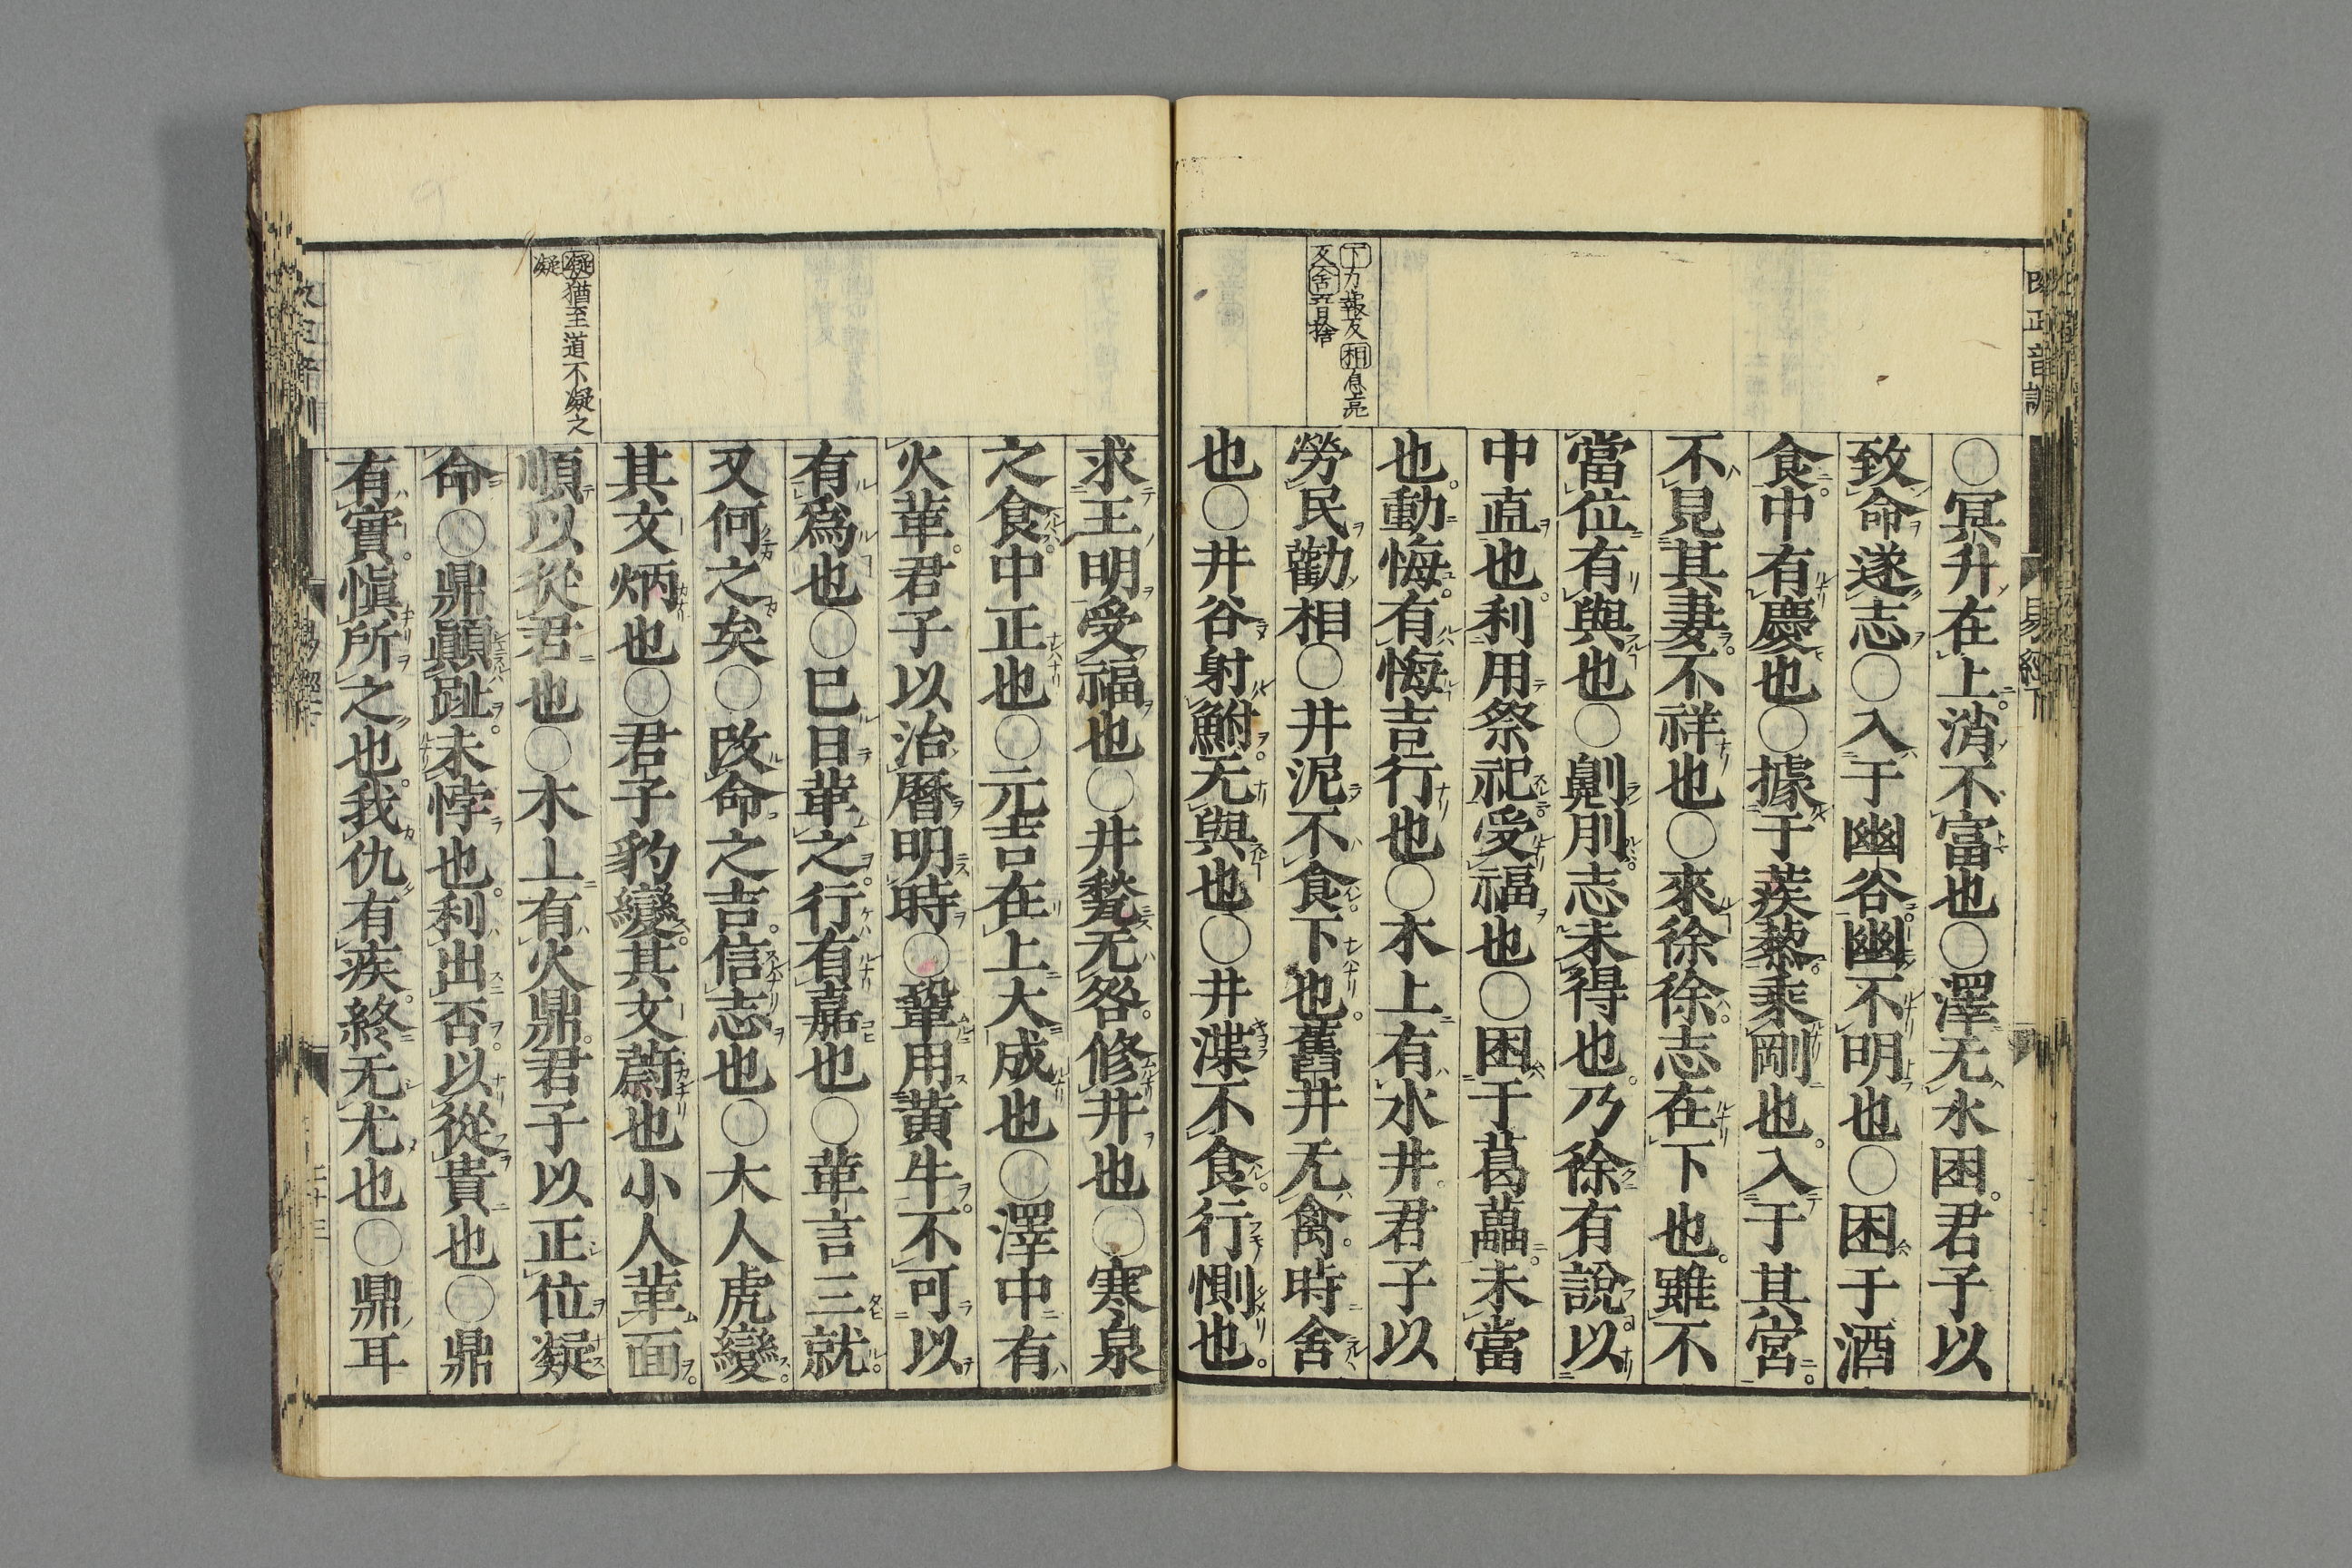 ○冥升在上消不富也○澤无水困君子以
致命遂志○入于幽谷幽不明也○困于酒
食中有慶也○據于蒺藜乘剛也入于其宮
不見其妻不祥也○來徐徐志在下也雖不
當位有與也○劓刖志未得也乃徐有說以
中直也利用祭祀受福也○困于葛藟未當
也動悔有悔吉行也○木上有水井君子以
勞民勸相○井泥不食下也舊井无禽時舍
也○井谷射鮒无與也○井渫不食行惻也
下力報反相息亮
反舍音捨
易經下
求王明受福也○井甃无咎修井也○寒泉
之食中正也○元吉在上大成也○澤中有
火革君子以治曆明時○鞏用黃牛不可以
有爲也○已日革之行有嘉也○革言三就
又何之矣○改命之吉信志也○大人虎變
其文炳也○君子豹變其文蔚也小人革面
順以從君也○木上有火鼎君子以正位凝
命○鼎顚趾未悖也利出否以從貴也○鼎
有實愼所之也我仇有疾終无尤也○鼎耳
凝猶至道不凝之
凝